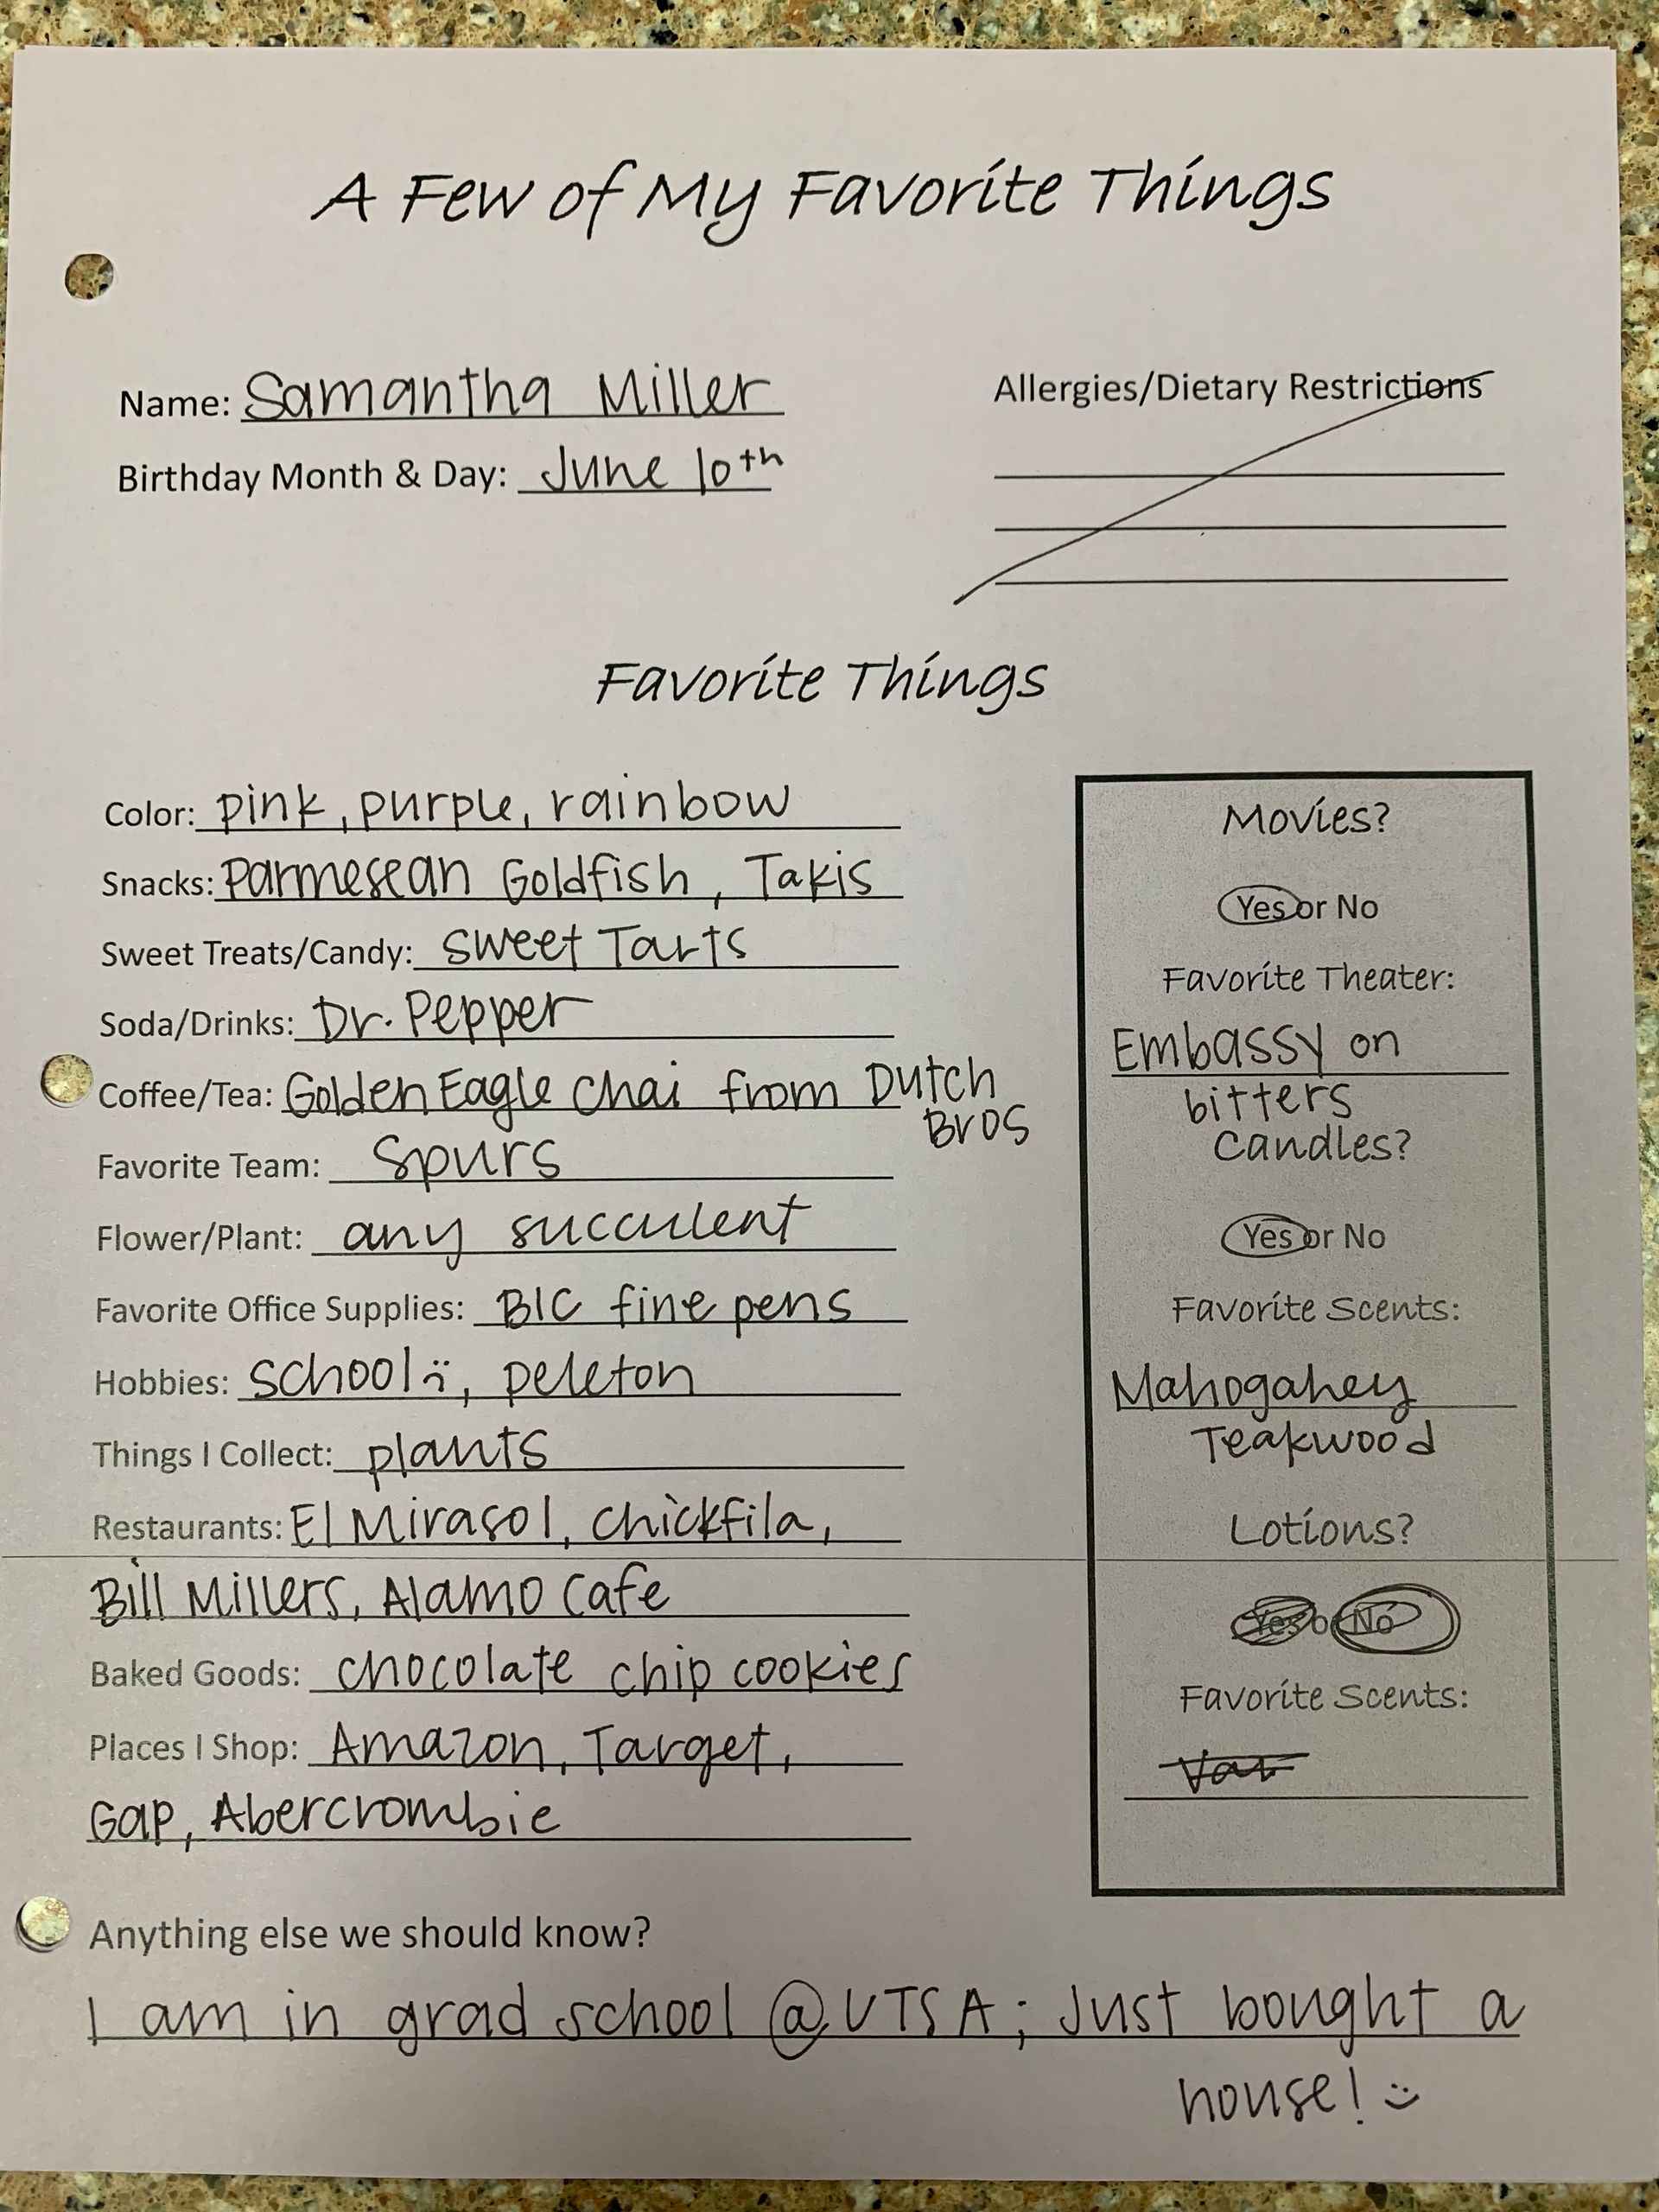 A Few of My Favorite Things
Name: Samantha Miller
Birthday Month & Day: June 10th
Allergies/Dietary Restrictions
Favorite Things
Color: pink, purple, rainbow
Snacks: Parmesean Goldfish, Takis
Sweet Treats/Candy: Sweet Tarts
Soda/Drinks: Dr. Pepper
Coffee/Tea: Golden Eagle Chai from Dutch
Bros
Favorite Team: Spurs
Flower/Plant: any succulent
Favorite Office Supplies: BIC fine pens
Hobbies: school :(, peleton
Things I Collect: plants
Restaurants: El Mirasol, Chickfila,
Bill Millers, Alamo Cafe
Baked Goods: chocolate chip cookies
Places I Shop: Amazon, Target,
Gap, Abercrombie
Movies?
Yes or No
Favorite Theater:
Embassy on
bitters
Candles?
Yes or No
Favorite Scents:
Mahogahey
Teakwood
Lotions?
Yes or No
Favorite Scents:
Anything else we should know?
I am in grad school @UTSA; Just bought a
house! :)